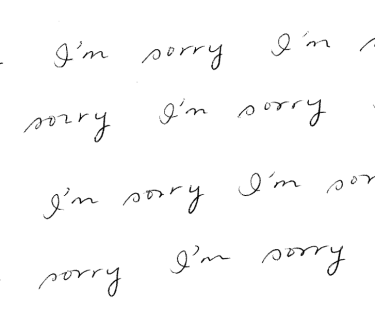 I'm sorry I'm
sorry I'm sorry
I'm sorry I'm sor
sorry I'm sorry